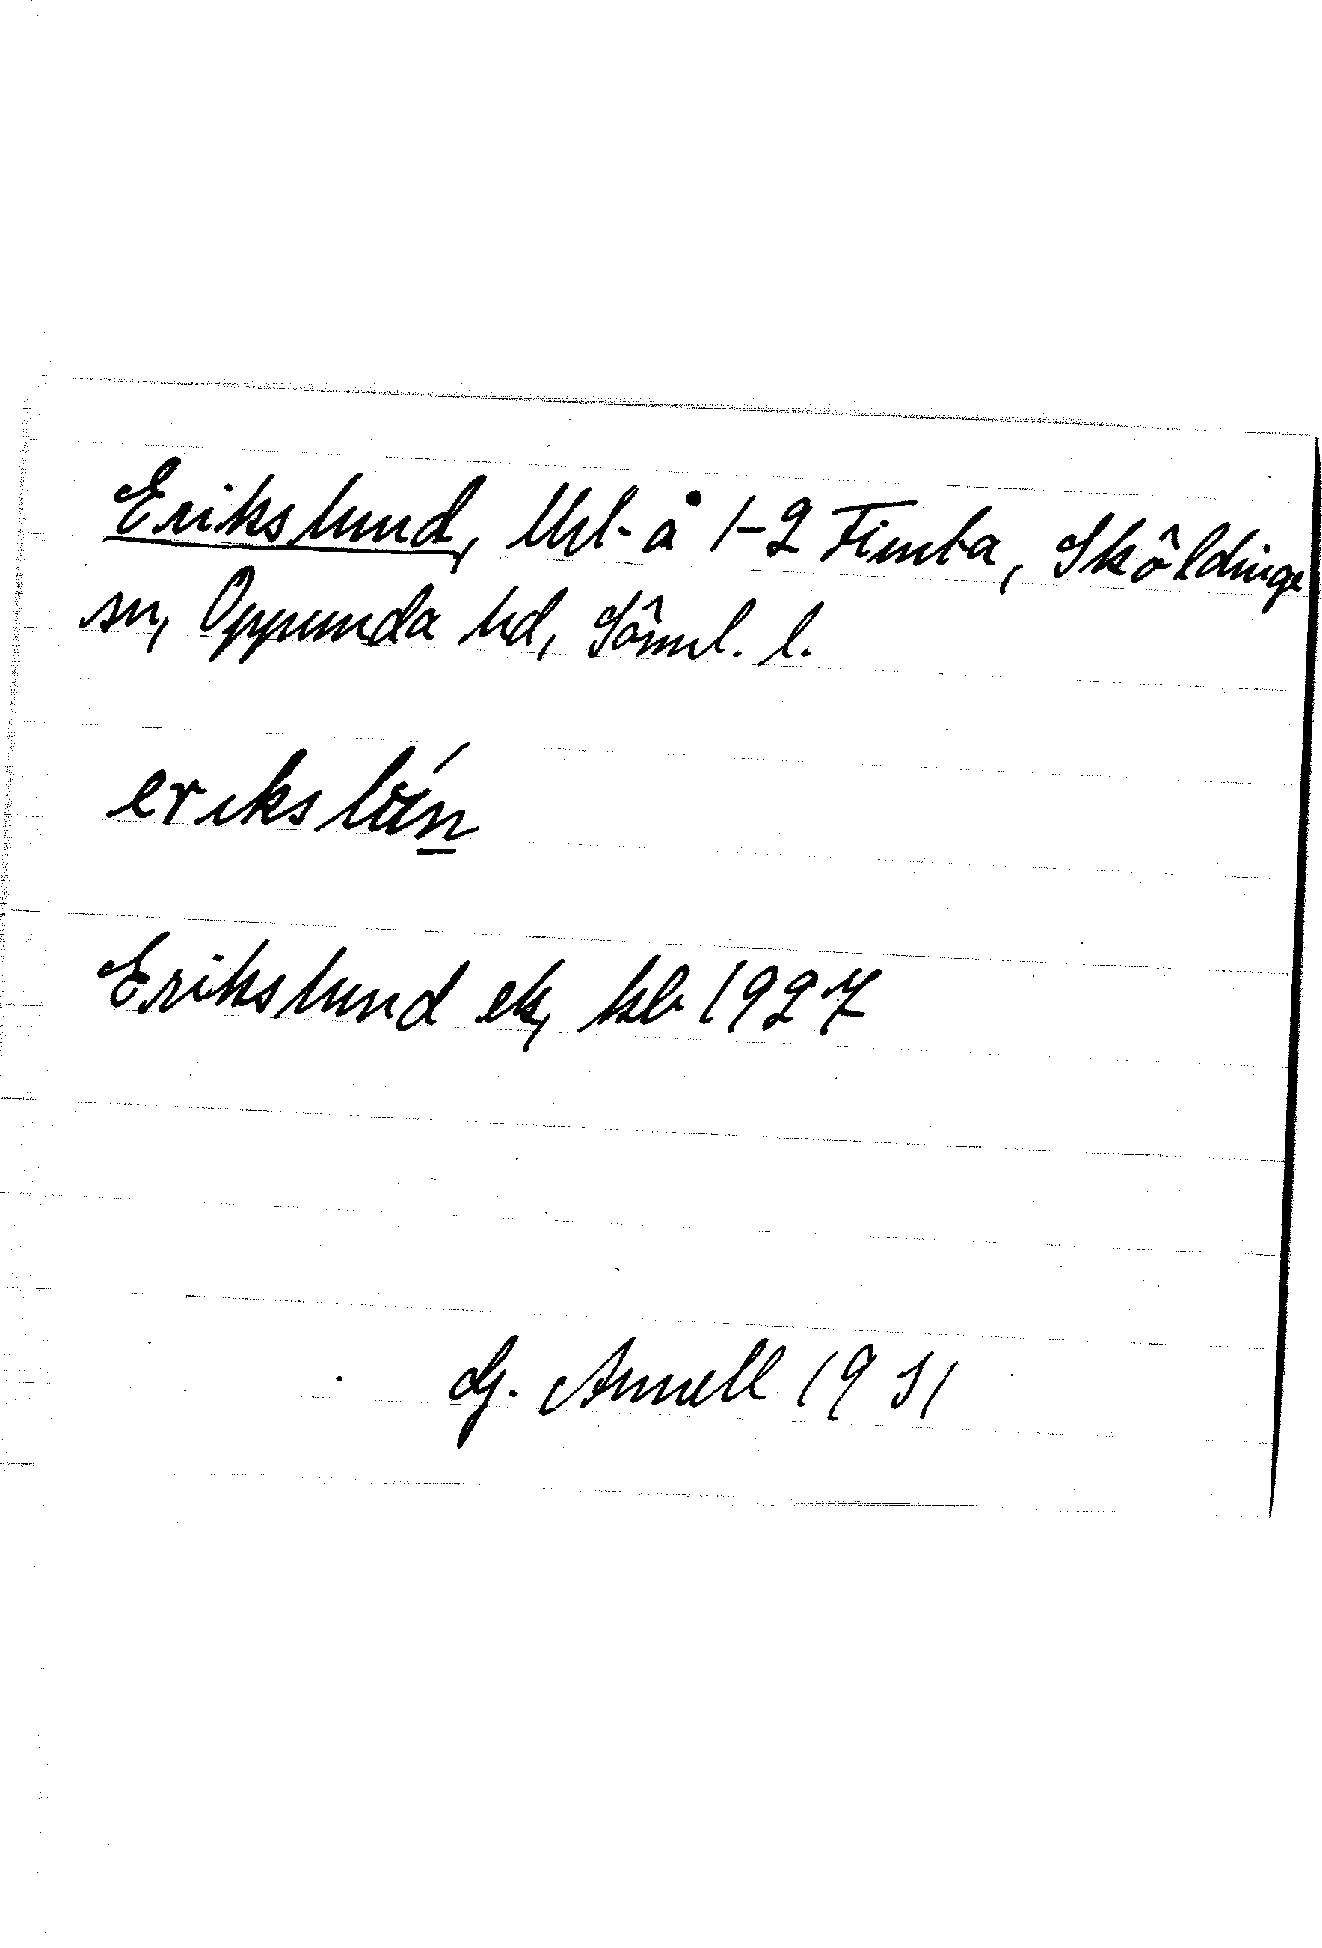 Erikslund, Uhl. å 1-2 Fimta, Sköldinge
sn, Oppunda hd, Söml. l.
erikslún
Erikslund ek, kb 1927
G. Annell 1931